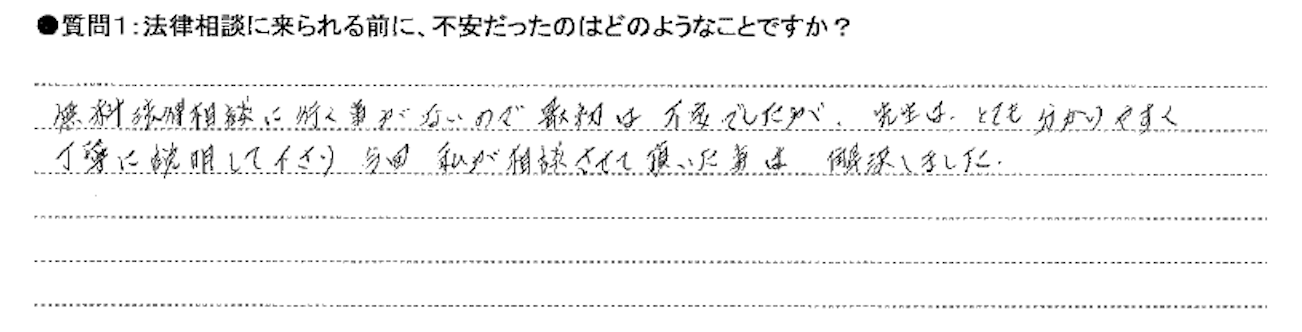 ●質問1:法律相談に来られる前に、不安だったのはどのようなことですか?
無料法律相談に行く事がないので最初は不安でしたが、先生は、とても分かりやすく
丁寧に説明して下さり今回私が相談させて頂いた事は解決しました.